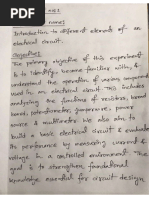 Introduction to different elements of an
electrical circuit.
Objective:
The primary objective of this experiment
is to identify, become familiar with, &
understand the operation of various components
used in an electrical circuit. This includes
analyzing the functions of resistors, bread
board, potentiometer, ammeter, power
source & multimeter. We also aim to
build a basic electrical circuit & evaluate
its performance by measuring current &
voltage in a controlled environment. The
goal is to strengthen foundational
knowledge essential for circuit design